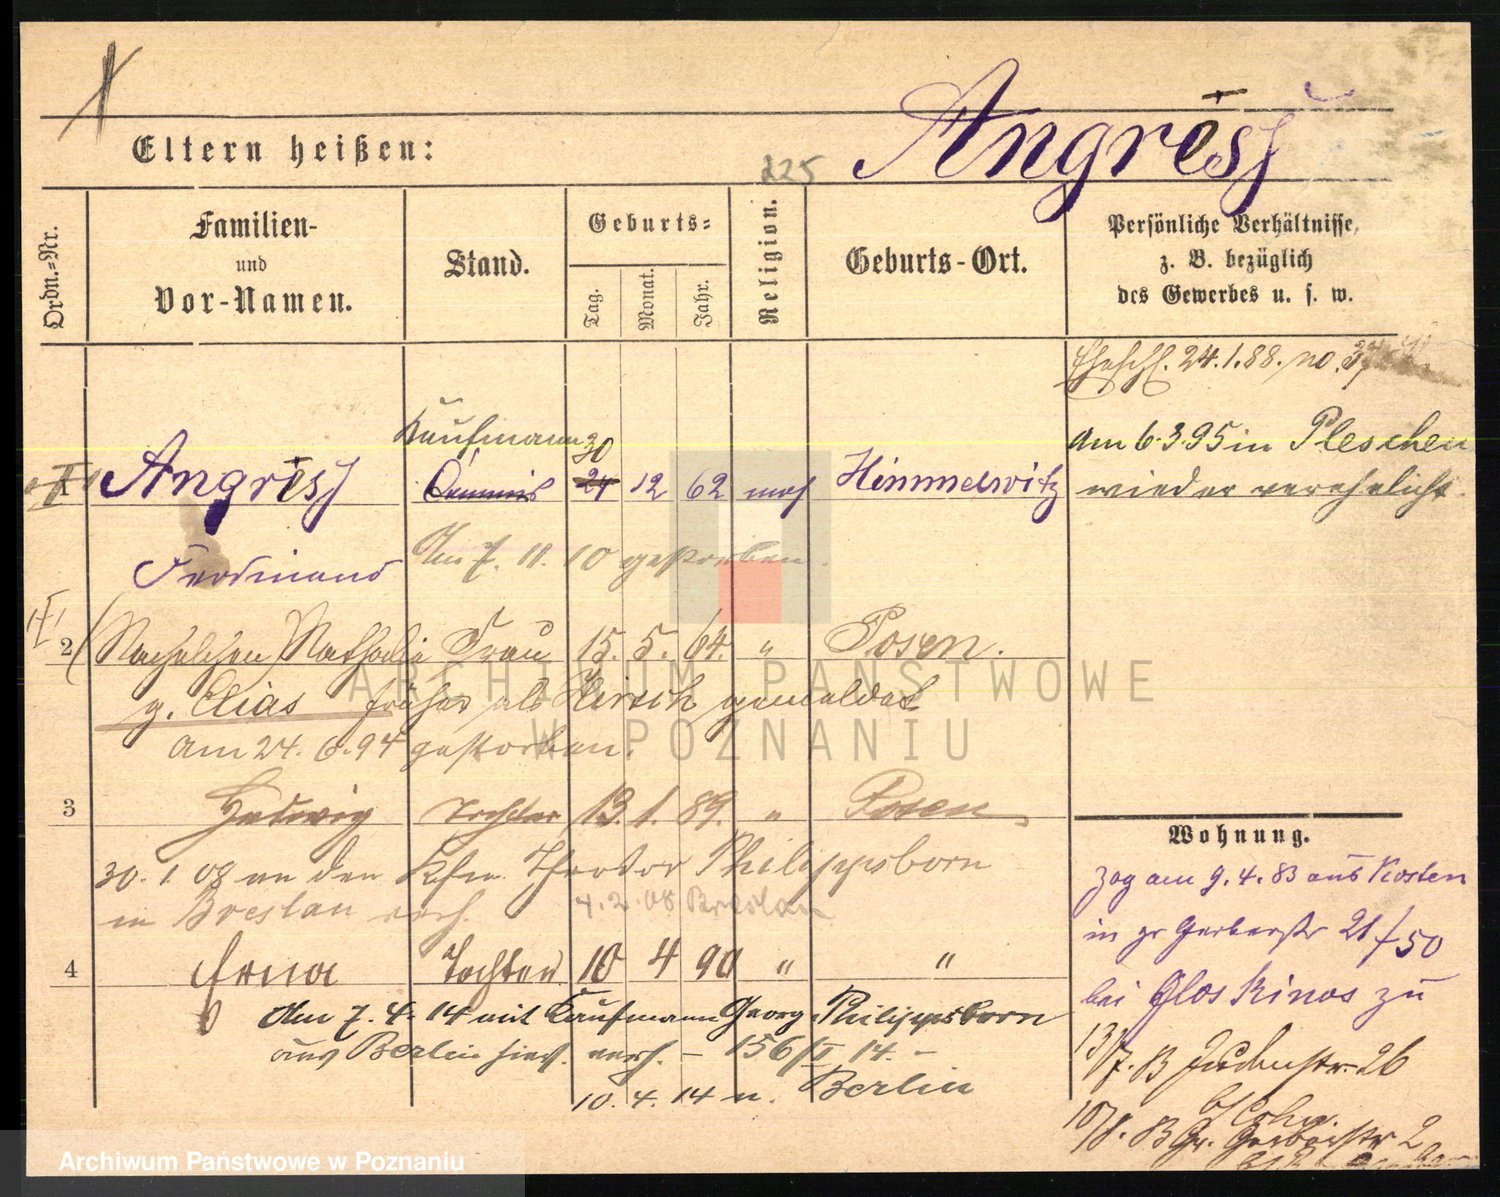 Angress
Eltern heißen:
225
Ordn.=Nr.
Familien-
und
Vor-Namen.
Stand.
Geburts=
Tag.
Monat.
Jahr.
Religion.
Geburts-Ort.
Persönliche Verhältnisse,
z. B. bezüglich
des Gewerbes u. s. w.
Eheschl. 24.1.88. no. 37
Kaufmann
30
am 6.3.95 in Pleschen
1 Angress Commis 24 12 62 mos Himmelwitz
wieder verehelicht.
Ferdinand
Am 7. 11. 10 gestorben.
2 Nathalie Frau 15. 5. 64. " Posen.
g. Elias früher als Hirsch gemeldet
am 24. 6. 94 gestorben.
3 Hedwig Tochter 13. 1. 89. " Posen
30. 1. 08 an den Kfm. Theodor Philippsborn
in Breslau verh. 4. 2. 08 Breslau
4 Erna Tochter 10 4 90 " "
Am 7. 4. 14 mit Kaufmann Georg Philippsborn
aus Berlin hier verh. - 156/II 14. -
10. 4. 14 n. Berlin
Wohnung.
Zog am 9. 4. 83 aus Kosten
in gr Gerberstr 21/50
bei Gloskinos zu
13/7. 83 Judenstr. 26
b/ Cohn.
10/8. 83 Gr. Gerberstr 2
ARCHIWUM PAŃSTWOWE
W POZNANIU
Archiwum Państwowe w Poznaniu